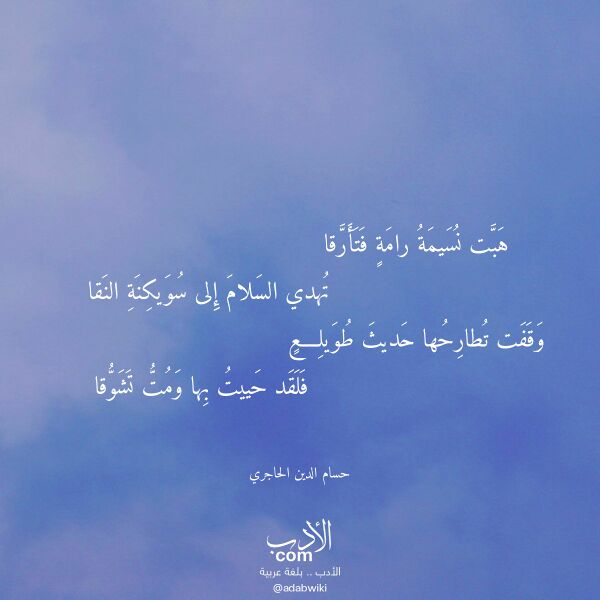 هَبَّت نُسَيمَةُ رامَةٍ فَتَأَرَّقا
تُهدي السَلامَ إِلى سُوَيكِنَةِ النَقا
وَقَفَت تُطارِحُها حَديثَ طُوَيلِـــعٍ
فَلَقَد حَييتُ بِها وَمُتُّ تَشَوُّقا
حسام الدين الحاجري
الأدب
com
الأدب .. بلغة عربية
@adabwiki